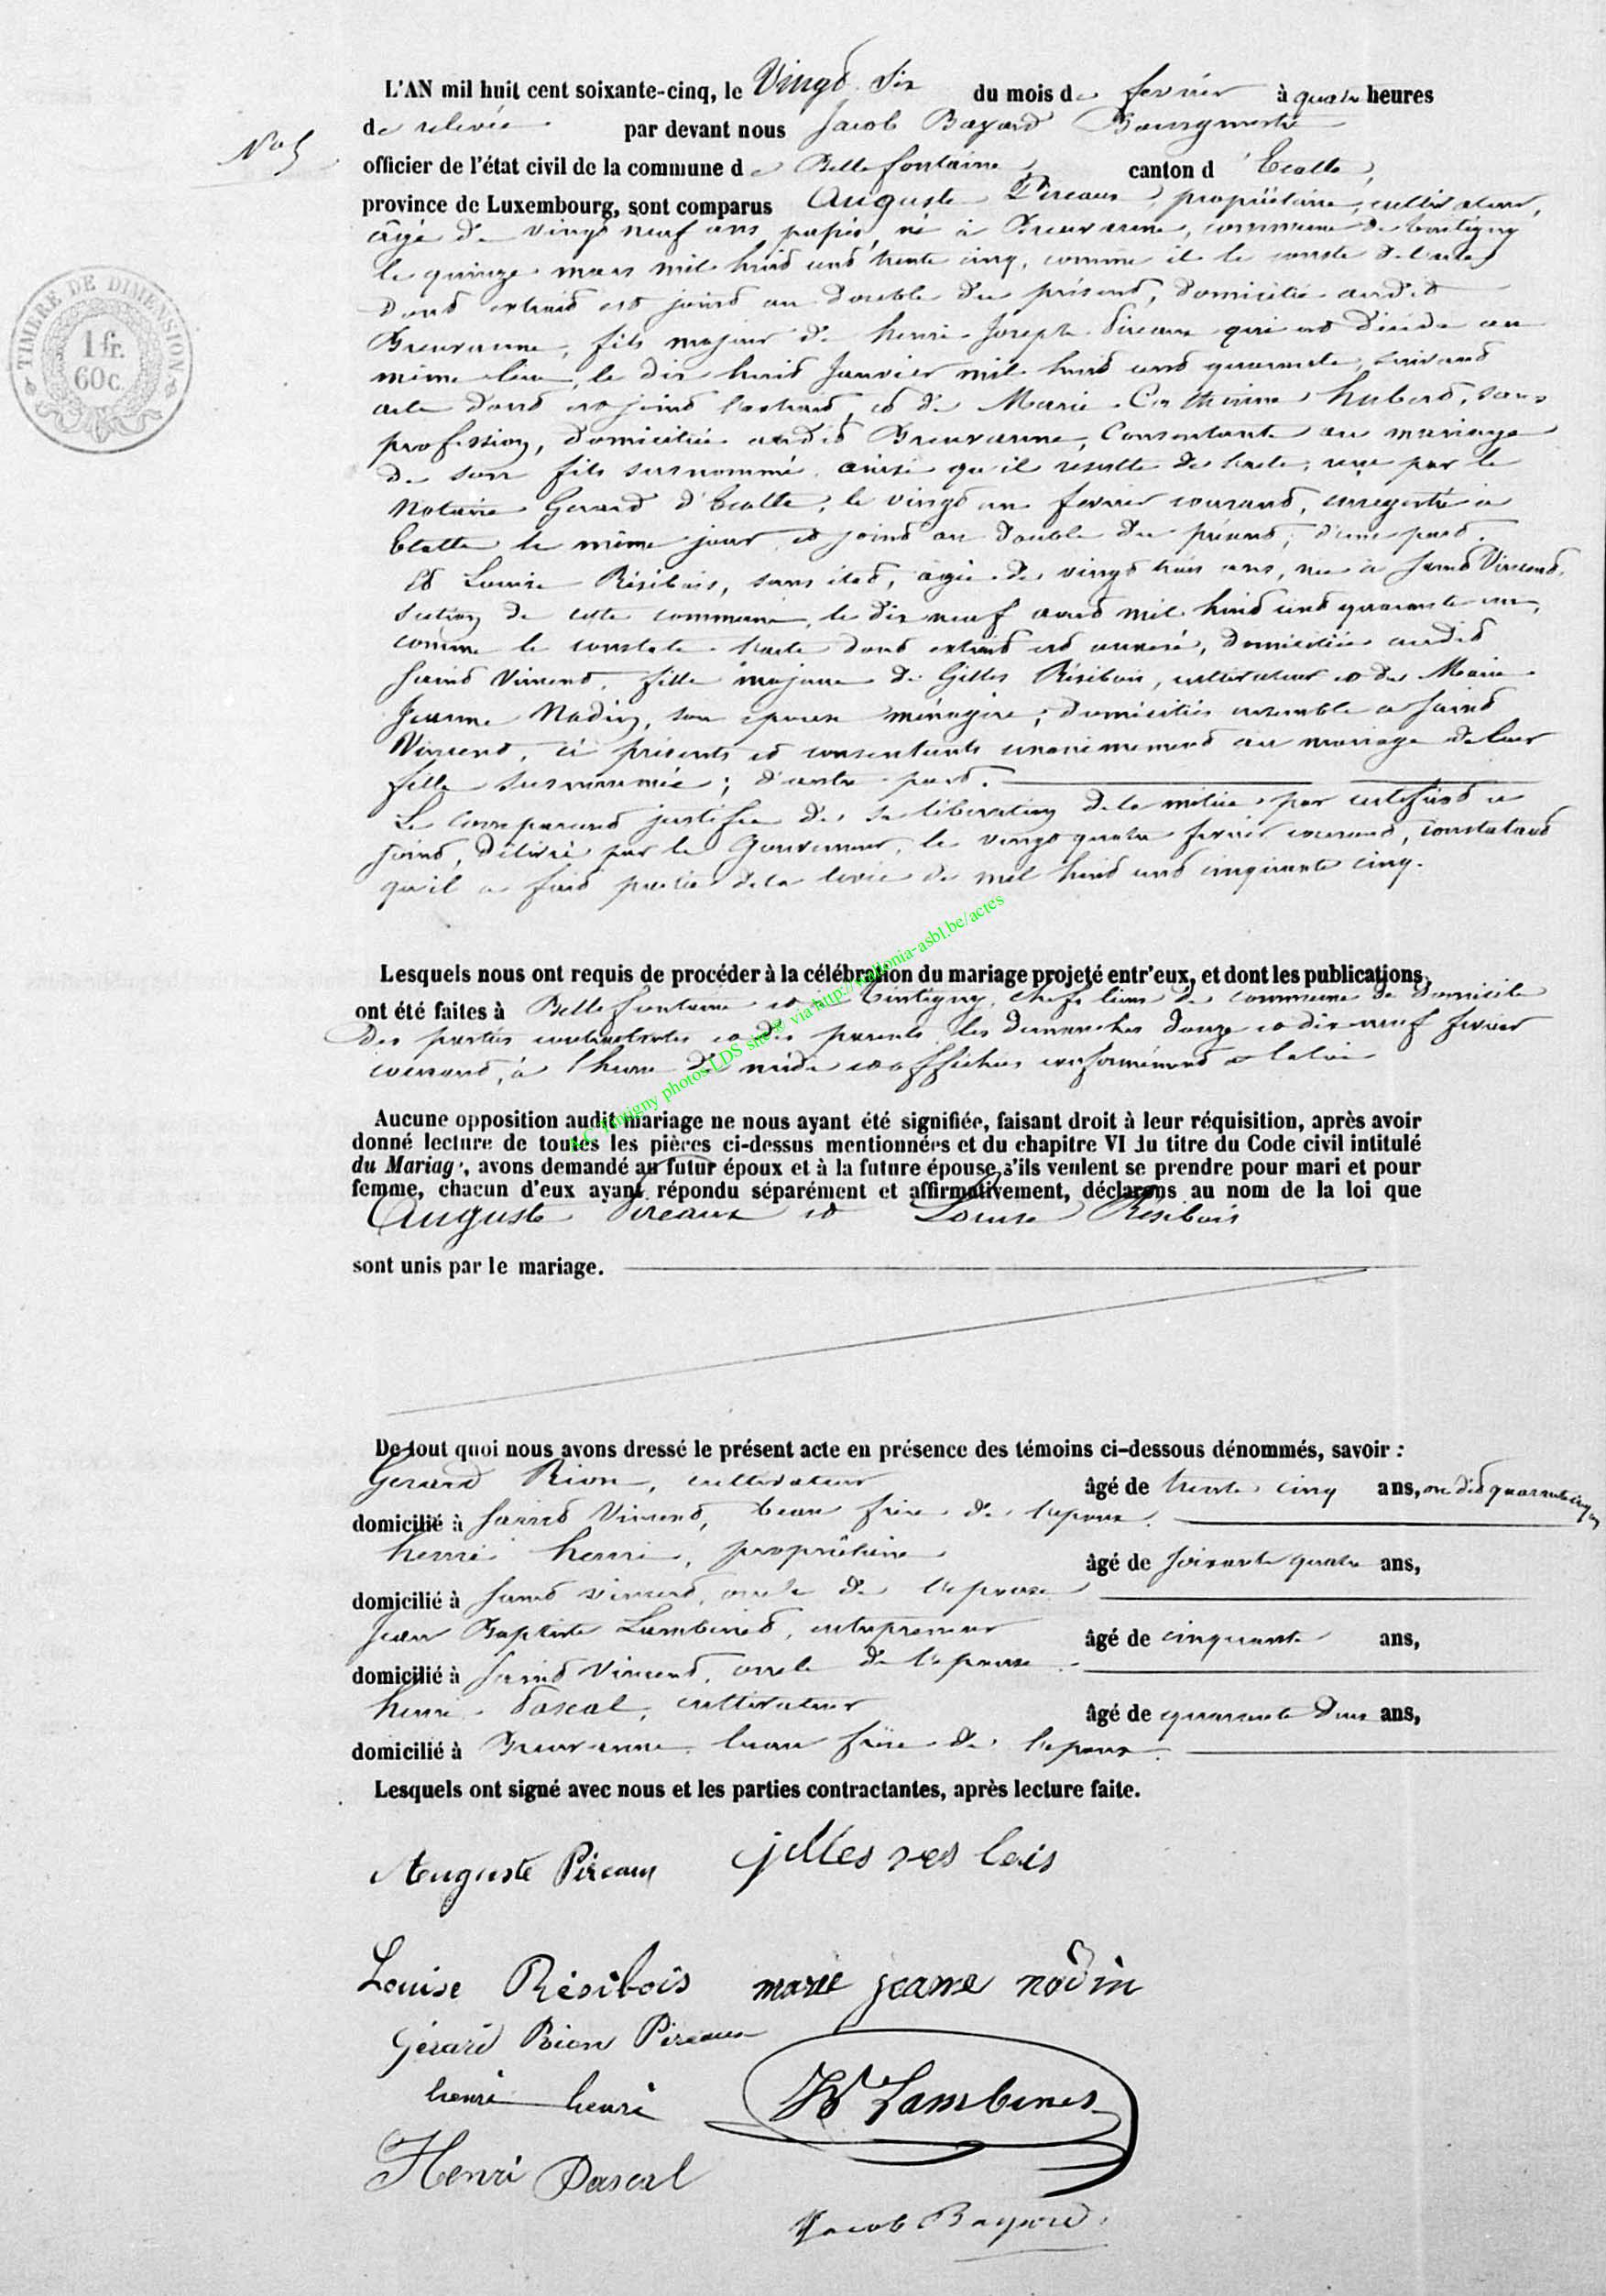 L'AN mil huit cent soixante-cinq, le Vingt six du mois de fevrier à quatre heures
de relevée par devant nous Jacob Bayard Bourgmestre
N° 5
officier de l'état civil de la commune de Bellefontaine, canton d'Etalle,
province de Luxembourg, sont comparus Auguste Pireaux, propriétaire, cultivateur,
âgé de vingt neuf ans passés, né à Breuvanne, commune de Tintigny
le quinze mars mil huit cent trente cinq, comme il le conste de l'acte
dont extrait est joint au double du présent, domicilié audit
Breuvanne, fils majeur de henri Joseph Pireaux qui est décédé au
même lieu, le dix huit Janvier mil huit cent quarante, suivant
acte dont est joint l'extrait, et de Marie Catherine hubert, sans
profession, domiciliée audit Breuvanne, Consentante au mariage
de son fils susnommé, ainsi qu'il résulte de l'acte, reçu par le
Notaire Gerard d'Etalle, le vingt un fevrier courant, enregistré à
Etalle le même jour et joint au double du présent, d'une part.
Et Louise Résibois, sans état, âgée de vingt trois ans, née à Saint Vincent,
section de cette commune, le dix neuf aout mil huit cent quarante un,
comme le constate l'acte dont extrait est annexé, domiciliée audit
Saint Vincent, fille majeure de Gilles Résibois, cultivateur et de Marie
Jeanne Nadin, son épouse ménagère, domiciliés ensemble à Saint
Vincent, ci présents et consentants unanimement au mariage de leur
fille susnommée; d'autre part.
Le Comparant justifie de sa libération de la milice par certificat ci
joint, délivré par le Gouverneur, le vingt quatre fevrier courant, constatant
qu'il a fait partie de la levée de mil huit cent cinquante cinq.
TIMBRE DE DIMENSION
1 fr.
60 c.
Lesquels nous ont requis de procéder à la célébration du mariage projeté entr'eux, et dont les publications
ont été faites à Bellefontaine et à Tintigny, chefs lieux de commune de domicile
des parties contractantes et des parents les dimanches douze et dix neuf fevrier
courant, à l'heure de midi et affichées conformément à la loi
A.C. Tintigny photos LDS site © via http://wallonia-asbl.be/actes
Aucune opposition audit mariage ne nous ayant été signifiée, faisant droit à leur réquisition, après avoir
donné lecture de toutes les pièces ci-dessus mentionnées et du chapitre VI du titre du Code civil intitulé
du Mariage, avons demandé au futur époux et à la future épouse s'ils veulent se prendre pour mari et pour
femme, chacun d'eux ayant répondu séparément et affirmativement, déclarons au nom de la loi que
Auguste Pireaux et Louise Résibois
sont unis par le mariage.
De tout quoi nous avons dressé le présent acte en présence des témoins ci-dessous dénommés, savoir :
Gerard Rion, cultivateur âgé de trente cinq ans, on dit quarante cinq
domicilié à Saint Vincent, beau frère de l'époux.
henri henri, propriétaire âgé de Soixante quatre ans,
domicilié à Saint Vincent, oncle de l'épouse
Jean Baptiste Lambinet, entrepreneur âgé de cinquante ans,
domicilié à Saint Vincent, oncle de l'épouse
henri Pascal, cultivateur âgé de quarante deux ans,
domicilié à Breuvanne, beau frère de l'époux.
Lesquels ont signé avec nous et les parties contractantes, après lecture faite.
Auguste Pireaux jilles res bois
Louise Résibois marie jeanne nadin
Gérard Rion Pireaux
henri henri JB Lambinet
Henri Pascal
Jacob Bayard